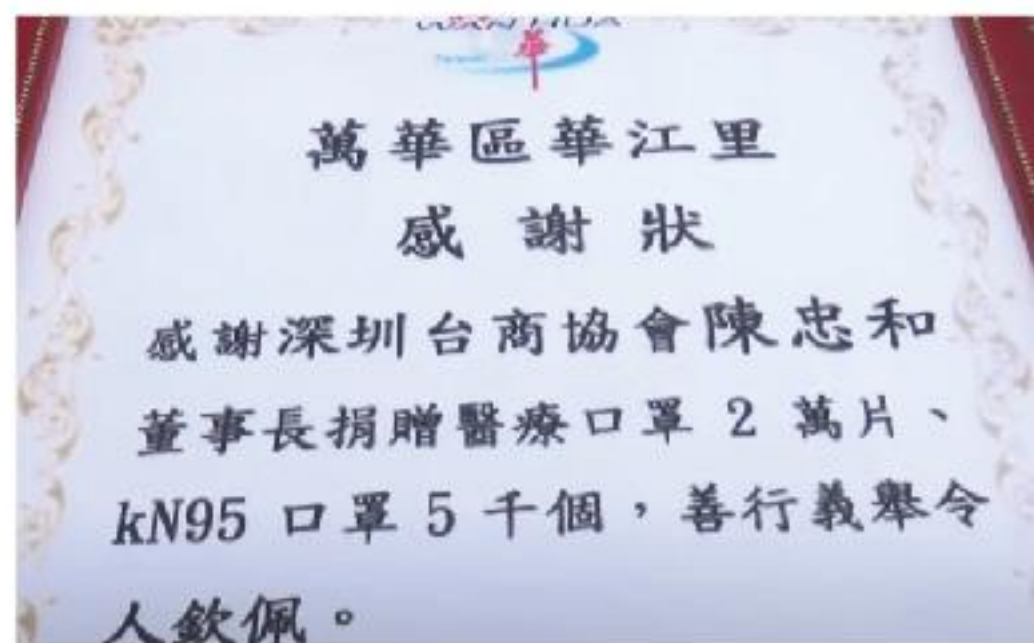 華
萬華區華江里
感謝狀
感謝深圳台商協會陳忠和
董事長捐贈醫療口罩 2 萬片、
kN95 口罩 5 千個，善行義舉令
人欽佩。